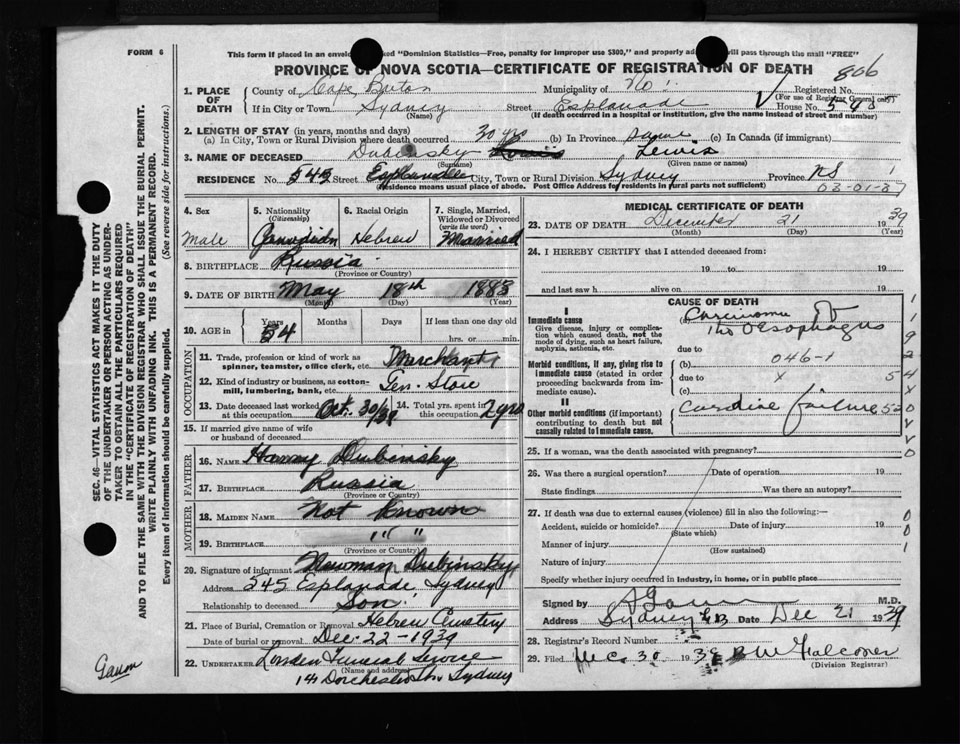 FORM 6
This form if placed in an envelope marked "Dominion Statistics—Free, penalty for improper use $300," and properly addressed will pass through the mail "FREE"
PROVINCE OF NOVA SCOTIA—CERTIFICATE OF REGISTRATION OF DEATH
806
1. PLACE OF DEATH
County of Cape Breton Municipality of No. Registered No.
(For use of Registrar General only)
If in City or Town Sydney Street Esplanade House No. 545
(Name) (If death occurred in a hospital or institution, give the name instead of street and number)
2. LENGTH OF STAY (in years, months and days)
(a) In City, Town or Rural Division where death occurred 30 yrs (b) In Province same (c) In Canada (if immigrant)
3. NAME OF DECEASED Dubinsky Louis Lewis
(Surname) (Given name or names)
RESIDENCE No. 545 Street Esplanade City, Town or Rural Division Sydney Province NS
(Residence means usual place of abode. Post Office Address for residents in rural parts not sufficient)
03-01-37
4. Sex Male
5. Nationality (Citizenship) Canadian
6. Racial Origin Hebrew
7. Single, Married, Widowed or Divorced (write the word) Married
8. BIRTHPLACE Russia
(Province or Country)
9. DATE OF BIRTH May 18th 1883
(Month) (Day) (Year)
10. AGE in Years Months Days If less than one day old
54 hrs. or min.
OCCUPATION
11. Trade, profession or kind of work as spinner, teamster, office clerk, etc. Merchant
12. Kind of industry or business, as cotton-mill, lumbering, bank, etc. Gen. Store
13. Date deceased last worked at this occupation Oct. 30/39
14. Total yrs. spent in this occupation 29 yrs
15. If married give name of wife or husband of deceased
FATHER
16. NAME Harry Dubinsky
17. BIRTHPLACE Russia
(Province or Country)
MOTHER
18. MAIDEN NAME Not Known
19. BIRTHPLACE " "
(Province or Country)
20. Signature of informant Newman Dubinsky
Address 545 Esplanade, Sydney
Relationship to deceased Son.
21. Place of Burial, Cremation or Removal Hebrew Cemetery
Date of burial or removal Dec-22-1939
22. UNDERTAKER Funeral Service
(Name and address)
Dorchester St. Sydney
MEDICAL CERTIFICATE OF DEATH
23. DATE OF DEATH December 21 1939
(Month) (Day) (Year)
24. I HEREBY CERTIFY that I attended deceased from:
19 to 19
and last saw h alive on 19
CAUSE OF DEATH
I
Immediate cause
Give disease, injury or complication which caused death, not the mode of dying, such as heart failure, asphyxia, asthenia, etc.
Carcinoma of
the Oesophagus
due to
Morbid conditions, if any, giving rise to immediate cause (stated in order proceeding backwards from immediate cause).
(b) 046-1
due to x 5
(c)
II
Other morbid conditions (if important) contributing to death but not causally related to immediate cause.
Cardiac failure
25. If a woman, was the death associated with pregnancy?
26. Was there a surgical operation? Date of operation 19
State findings Was there an autopsy?
27. If death was due to external causes (violence) fill in also the following:—
Accident, suicide or homicide? Date of injury 19
(State which)
Manner of injury
(How sustained)
Nature of injury
Specify whether injury occurred in industry, in home, or in public place
Signed by M.D.
Address Sydney CB Date Dec 21 1939
28. Registrar's Record Number
29. Filed Dec. 30 1939 Falconer
(Division Registrar)
SEC. 46—VITAL STATISTICS ACT MAKES IT THE DUTY
OF THE UNDERTAKER OR PERSON ACTING AS UNDER-
TAKER TO OBTAIN ALL THE PARTICULARS REQUIRED
IN THE "CERTIFICATE OF REGISTRATION OF DEATH"
AND TO FILE THE SAME WITH THE DIVISION REGISTRAR WHO SHALL ISSUE THE BURIAL PERMIT.
WRITE PLAINLY WITH UNFADING INK. THIS IS A PERMANENT RECORD.
Every item of information should be carefully supplied. (See reverse side for instructions.)
Gaum